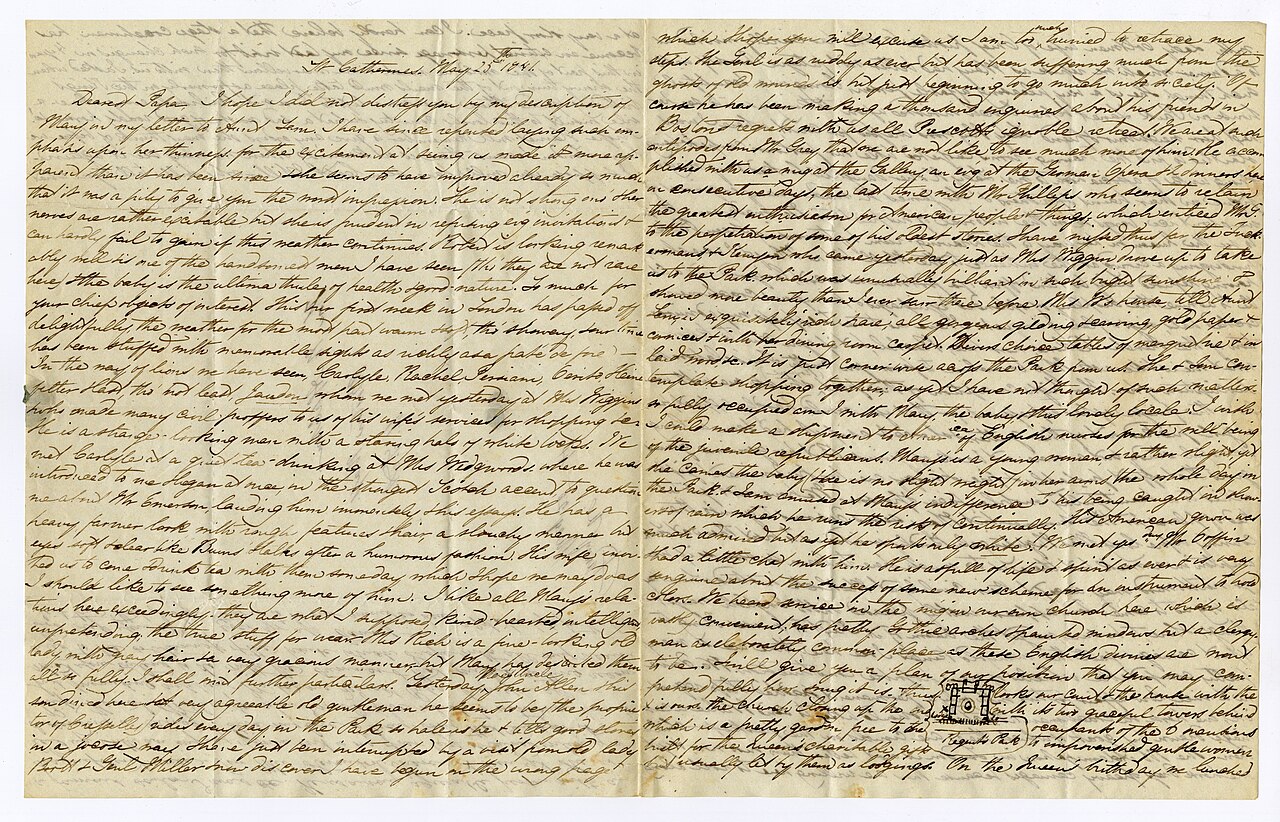 St. Catherines. May 25th 1841.
Dearest Papa. I hope I did not distress you by my description of
Mary in my letter to Aunt Sam. I have since repented laying such em-
phasis upon her thinness for the excitement at seeing us made it more ap-
parent than it has been since & she seems to have improved already so much
that it was a pity to give you the worst impression. She is not strong & her
nerves are rather excitable but she is prudent in refusing eve invitations &
can hardly fail to gain if this weather continues. Robert is looking remark
ably well & is one of the handsomest men I have seen, tho' they are not rare
here, & the baby is the ultima thule of health & good nature. So much for
your chief objects of interest. This our first week in London has passed off
delightfully, the weather for the most part warm & soft, tho' showery, & our time
has been stuffed with memorable sights as richly as a pate de foie
In the way of lions we have seen, Carlyle, Rachel, Persiani,
whom we met yesterday at Mrs Wiggins
made many civil proffers to us of his wife's services for shopping
He is a strange-looking man with a staring halo of white locks. We
met Carlyle at a quiet tea-drinking at Mrs Wedgwoods. where he was
introduced to me & began at once in the strongest Scotch accent to question
me about Mr Emerson, lauding him immensely & his essays. He has a
heavy farmer look with rough features & hair, a slouchy manner but
eyes & talks after a humorous fashion. His wife invi-
ted us to come & drink tea with them someday which I hope we may do as
I should like to see something more of him. I like all Mary's rela-
tions here exceedingly. they are what I supposed, kind hearted intelligent
unpretending, the true stuff for wear. Mrs Rich is a fine-looking old
lady with gray hair & a very gracious manner, but Mary has described them
all so fully, I shall omit further particulars. Yesterday John Allen & his
son dined here. a very agreeable old gentleman he seems to be, the proprie
tor of Cresselly, rides every day in the Park so hale is he & tells good stories
in a prose way. I have just been interrupted by a visit from old Lady
& Genl Miller & now discover I have begun on the wrong page
which I hope you will excuse as I am too much hurried to retrace my
steps. the Genl is as ruddy as ever but has been suffering much from the
effects of old wounds & is but just beginning to go much into society. Of
course he has been making a thousand enquiries about his friends in
Boston & regrets with us all Prescott's ignoble retreat. We are at such
antipodes from Mr Gray that we are not like to see much more of him. He accom
plished with us a morng at the Gallery, an eve at the German Opera & 2 dinners here
on consecutive days, the last time with Mr Phillips who seems to retain
the greatest enthusiasm for American people & things, which enticed Mr G.
to the perpetration of some of his oldest stories. I have missed
who came yesterday just as Mrs Wiggin drove up to take
us to the Park, which was unusually brilliant in such bright sunshine &
showed more beauty than I ever saw there before. Mrs W's house
is exquisitely nice here, all gorgeous gilding & carving, gold paper &
cornices & with her dining room carpet. & divers choice tables of marqueterie & in
laid wood &c. It is just corner wise across the Park from us. She & Sam con-
template shopping together, as yet I have not thought of such matters.
so fully occupied am I with Mary the baby & this lovely locale. I wish
I could make a shipment to America of English nurses for the well being
of the juvenile republicans. Mary's is a young woman & rather slight yet
she carries the baby (who is no slight weight) in her arms the whole day in
the Park & I am amused at Mary's indifference to his being caught in show
ers of rain which he runs the risk of continually. His American gown was
much admired but as yet he sports only white. We met yes'y Mr Coffin
& had a little chat with him. he is as full of life & spirit as ever & is very
sanguine about the success of some new scheme for an instrument to hold
colors. We heard service in the morn in our own church here which is
vastly convenient, has pretty Gothic arches & painted windows but a clergy
man as elaborately common-place as these English divines are wont
to be. I will give you a plan of our position that you may com-
prehend fully how snug it is. Thus looks our court & the house with the
x is ours, the Church closing up the with its two graceful towers behind
which is a pretty garden free to the occupants of the mansions
built for the Queens charitable gifts to impoverished gentlewomen
but usually let by them as lodgings. On the Queens birthday we lunched
Regents Park